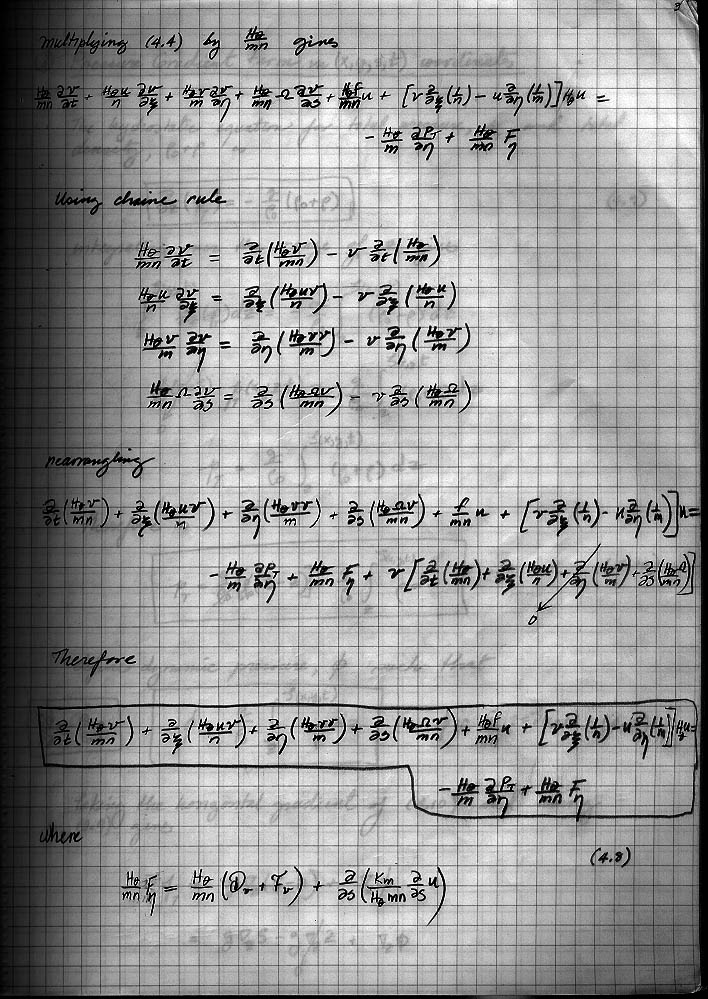 Multiplying (4.4) by Hθ/mn gives
Hθ/mn ∂v/∂t + Hθu/n ∂v/∂ξ + Hθv/m ∂v/∂η + Hθ/mn Ω ∂v/∂s + Hθf/mn u + [v ∂/∂ξ(1/n) - u ∂/∂η(1/m)] Hθ u =
- Hθ/m ∂P_T/∂η + Hθ/mn F_η
Using chaine rule
Hθ/mn ∂v/∂t = ∂/∂t (Hθv/mn) - v ∂/∂t (Hθ/mn)
Hθu/n ∂v/∂ξ = ∂/∂ξ (Hθuv/n) - v ∂/∂ξ (Hθu/n)
Hθv/m ∂v/∂η = ∂/∂η (Hθvv/m) - v ∂/∂η (Hθv/m)
Hθ/mn Ω ∂v/∂s = ∂/∂s (HθΩv/mn) - v ∂/∂s (HθΩ/mn)
rearrangling
∂/∂t (Hθv/mn) + ∂/∂ξ (Hθuv/n) + ∂/∂η (Hθvv/m) + ∂/∂s (HθΩv/mn) + f/mn u + [v ∂/∂ξ(1/n) - u ∂/∂η(1/m)] u =
- Hθ/m ∂P_T/∂η + Hθ/mn F_η + v [∂/∂t (Hθ/mn) + ∂/∂ξ (Hθu/n) + ∂/∂η (Hθv/m) + ∂/∂s (HθΩ/mn)]
0
Therefore
∂/∂t (Hθv/mn) + ∂/∂ξ (Hθuv/n) + ∂/∂η (Hθvv/m) + ∂/∂s (HθΩv/mn) + Hθf/mn u + [v ∂/∂ξ(1/n) - u ∂/∂η(1/m)] Hθ u =
- Hθ/m ∂P_T/∂η + Hθ/mn F_η
where
(4.8)
Hθ/mn F_η = Hθ/mn (D_v + F_v) + ∂/∂s (Km/Hθmn ∂/∂s u)